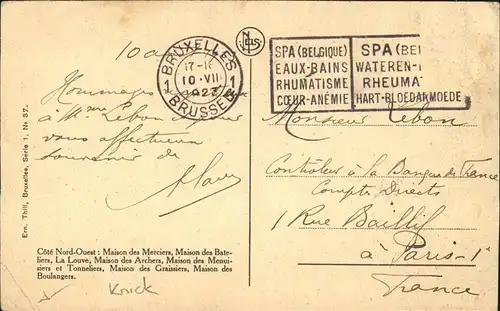 BRUXELLES
17-18
1 10 · VII 1
1923
BRUSSEL
NELS
SPA (BELGIQUE)
EAUX-BAINS
RHUMATISME
CŒUR-ANÉMIE
SPA (BEL
WATEREN-
RHEUMA
HART-BLOEDARMOEDE
10 a
Hommages
à Mme Lebon
vous affectueux
souvenir de
Monsieur Lebon
Contrôleur à la Banque de France
Comptes Directs
1 Rue Baillif
à Paris-1e
France
Ern. Thill, Bruxelles, Série 1, No 37.
Côté Nord-Ouest : Maison des Merciers, Maison des Bate-
liers, La Louve, Maison des Archers, Maison des Menui-
siers et Tonneliers, Maison des Graissiers, Maison des
Boulangers.
Knick